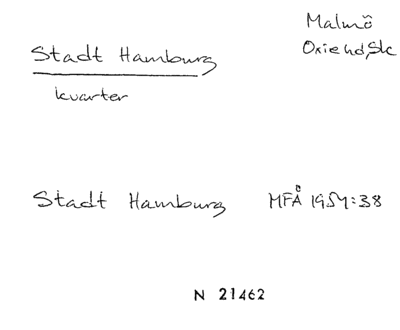 Malmö
Oxie hd, Sk
Stadt Hamburg
kvarter
Stadt Hamburg MFÅ 1954:38
N 21462